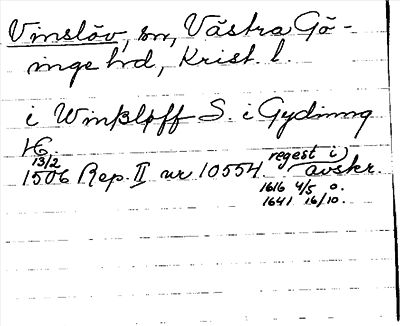 Vinslöv, sn, Västra Gö-
inge hd, Krist. l.
i Winßløff S. i Gydinng
H.
13/2
1506 Rep. II nr 10554 regest i) avskr.
1616 4/5 o.
1641 16/10.